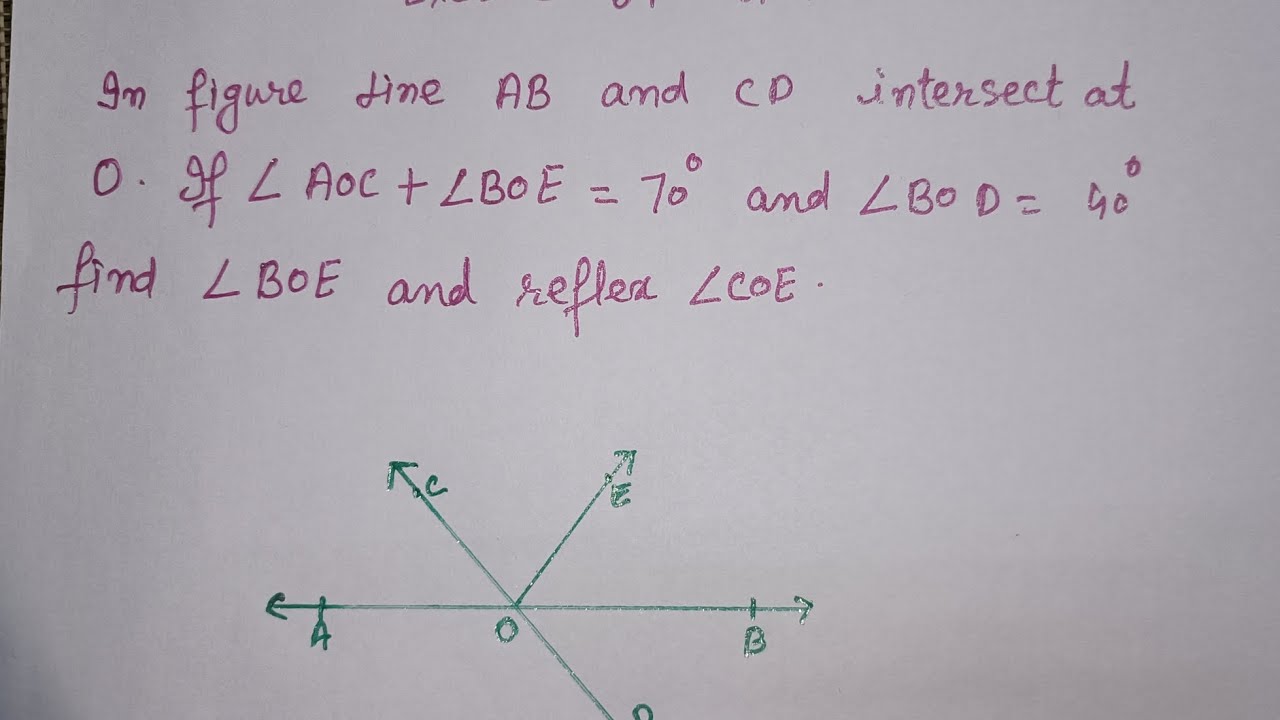 In figure line AB and CD intersect at
O. If ∠AOC + ∠BOE = 70° and ∠BOD = 40°
find ∠BOE and reflex ∠COE.
C
E
A
O
B
D